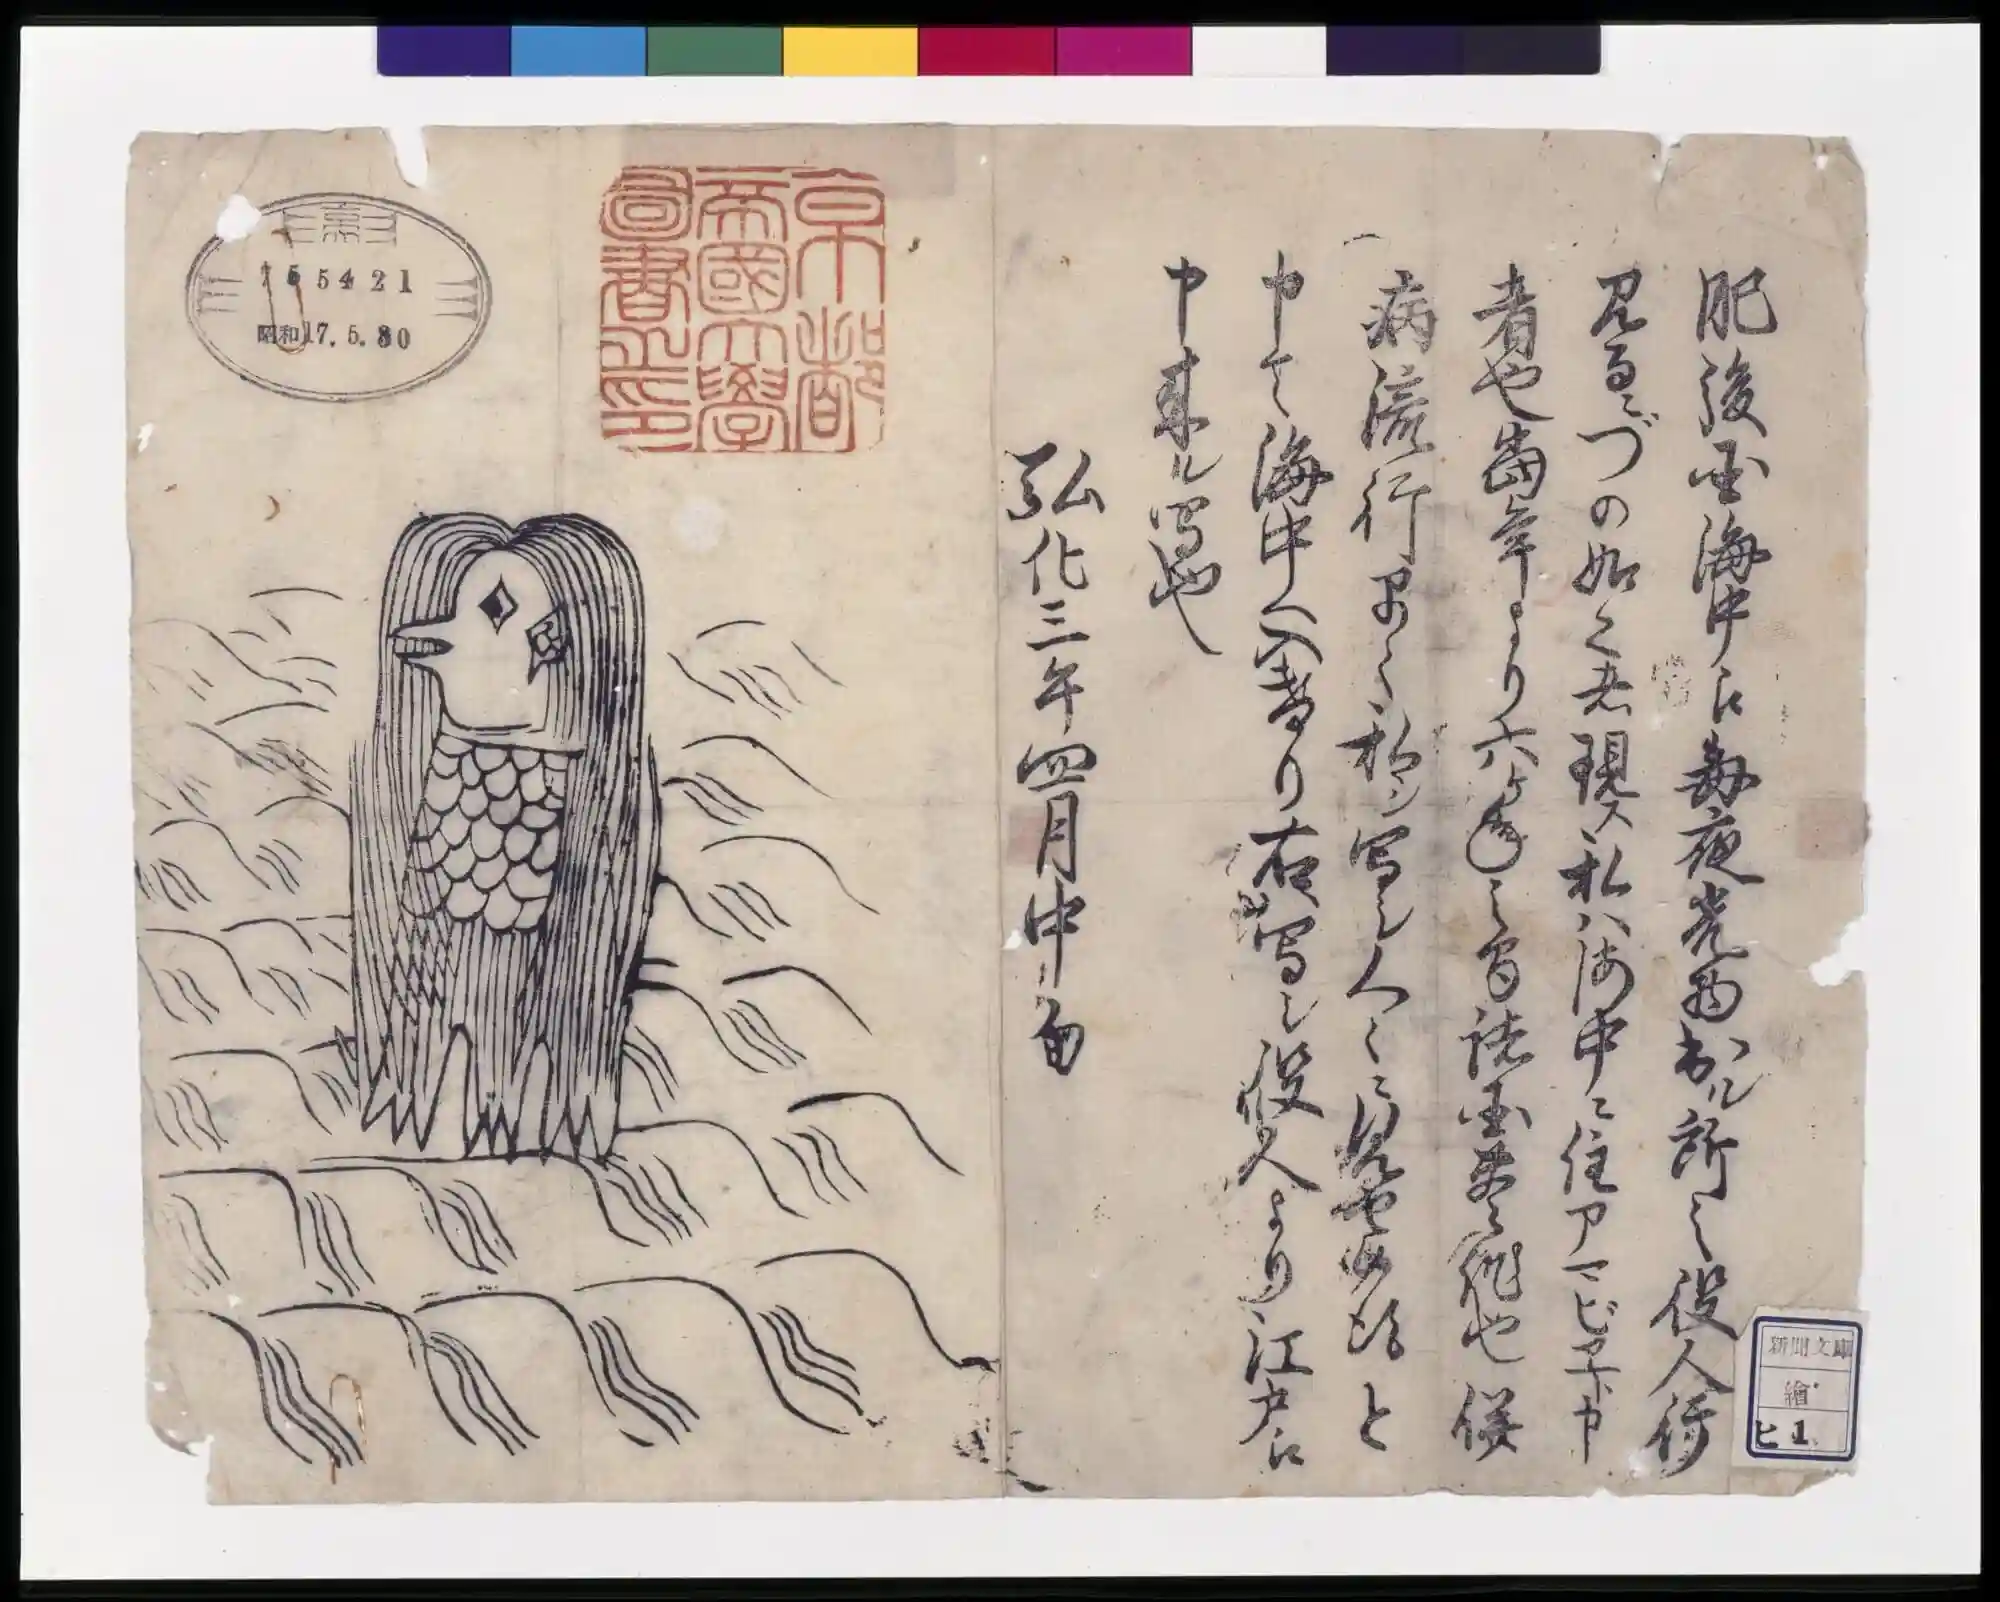 肥後国海中江毎夜光物出ル所之役人行
見るニづの如く者現ス私ハ海中ニ住アマビヱト申
者也當年より六ヶ年之間諸国豊作也併
病流行早々私ヲ写シ人々ニ見せ候得と
申て海中へ入けり右ハ写シ役人より江戸江
申来ル写也
弘化三年四月中旬
京都
帝國大學
圖書之印
755421
昭和17.5.30
新聞文庫
繪
ヒ1